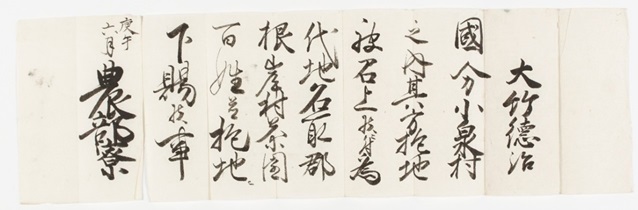 大竹德治
國分小泉村
之内其方抱地
被召上候付為
代地名取郡
根岸村茶園
百姓并抱地
下賜候事
庚午
十一月
農部寮